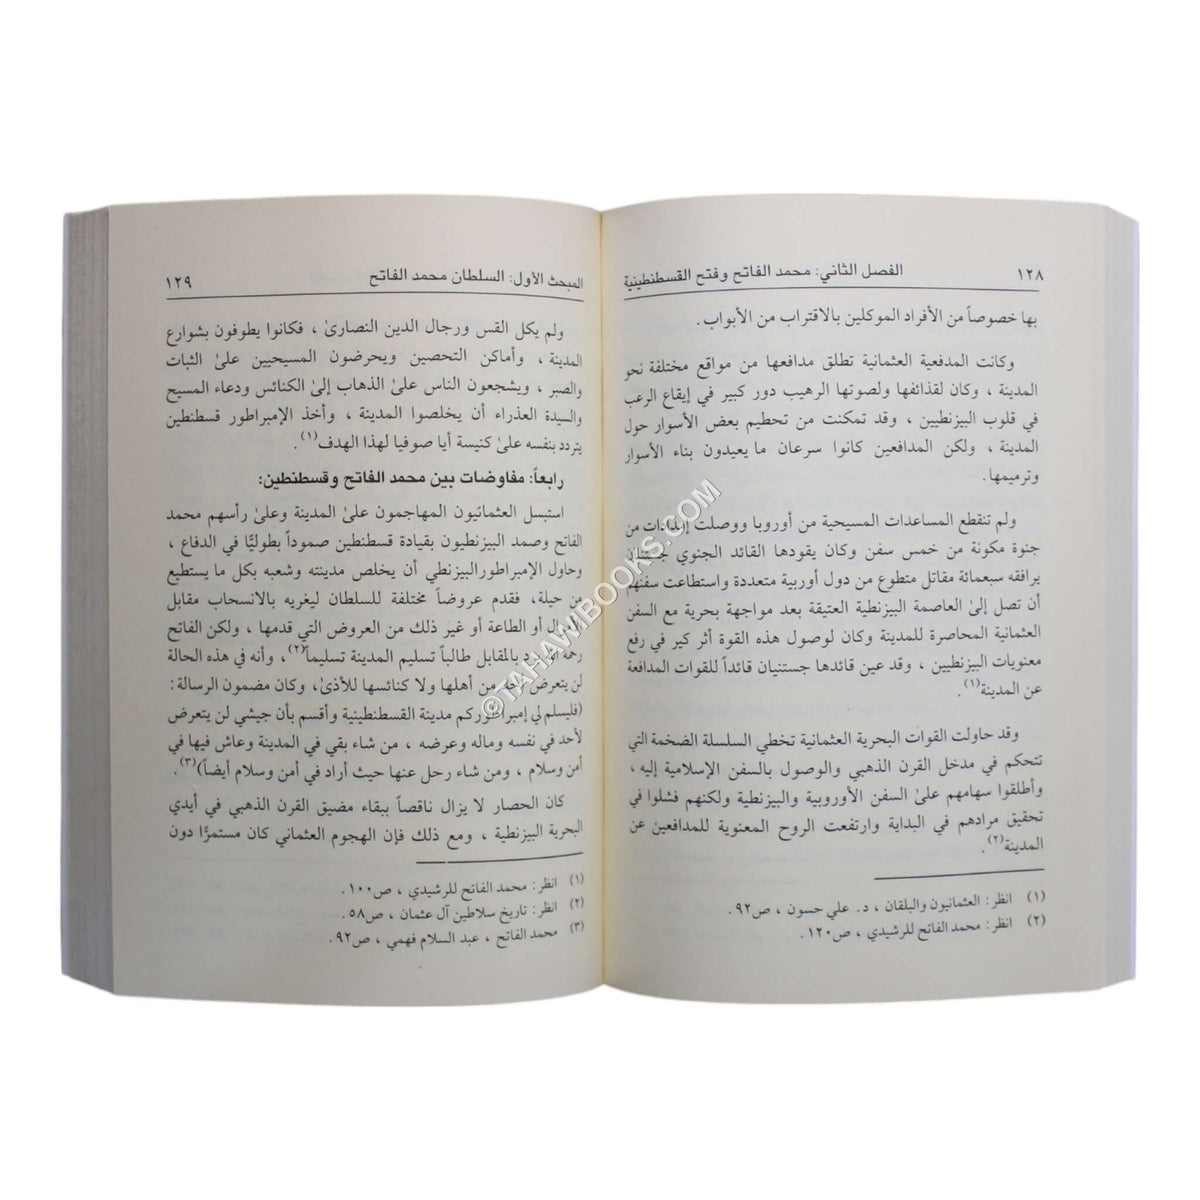 ١٢٨
الفصل الثاني: محمد الفاتح وفتح القسطنطينية
بها خصوصاً من الأفراد الموكلين بالاقتراب من الأبواب .
وكانت المدفعية العثمانية تطلق مدافعها من مواقع مختلفة نحو
المدينة ، وكان لقذائفها ولصوتها الرهيب دور كبير في إيقاع الرعب
في قلوب البيزنطيين ، وقد تمكنت من تحطيم بعض الأسوار حول
المدينة ، ولكن المدافعين كانوا سرعان ما يعيدون بناء الأسوار
وترميمها.
ولم تنقطع المساعدات المسيحية من أوروبا ووصلت إمدادات من
جنوة مكونة من خمس سفن وكان يقودها القائد الجنوي جستنيان
يرافقه سبعمائة مقاتل متطوع من دول أوربية متعددة واستطاعت سفنهم
أن تصل إلىٰ العاصمة البيزنطية العتيقة بعد مواجهة بحرية مع السفن
العثمانية المحاصرة للمدينة وكان لوصول هذه القوة أثر كير في رفع
معنويات البيزنطيين ، وقد عين قائدها جستنيان قائداً للقوات المدافعة
عن المدينة(١) .
وقد حاولت القوات البحرية العثمانية تخطي السلسلة الضخمة التي
تتحكم في مدخل القرن الذهبي والوصول بالسفن الإسلامية إليه ،
وأطلقوا سهامهم علىٰ السفن الأوروبية والبيزنطية ولكنهم فشلوا في
تحقيق مرادهم في البداية وارتفعت الروح المعنوية للمدافعين عن
المدينة(٢) .
(١) انظر: العثمانيون والبلقان ، د. علي حسون ، ص٩٢ .
(٢) انظر: محمد الفاتح للرشيدي ، ص١٢٠ .
المبحث الأول: السلطان محمد الفاتح
١٢٩
ولم يكل القس ورجال الدين النصارىٰ ، فكانوا يطوفون بشوارع
المدينة ، وأماكن التحصين ويحرضون المسيحيين علىٰ الثبات
والصبر ، ويشجعون الناس علىٰ الذهاب إلىٰ الكنائس ودعاء المسيح
والسيدة العذراء أن يخلصوا المدينة ، وأخذ الإمبراطور قسطنطين
يتردد بنفسه علىٰ كنيسة أيا صوفيا لهذا الهدف(١).
رابعاً: مفاوضات بين محمد الفاتح وقسطنطين:
استبسل العثمانيون المهاجمون علىٰ المدينة وعلىٰ رأسهم محمد
الفاتح وصمد البيزنطيون بقيادة قسطنطين صموداً بطوليًّا في الدفاع ،
وحاول الإمبراطورالبيزنطي أن يخلص مدينته وشعبه بكل ما يستطيع
من حيلة، فقدم عروضاً مختلفة للسلطان ليغريه بالانسحاب مقابل
الأموال أو الطاعة أو غير ذلك من العروض التي قدمها ، ولكن الفاتح
رحمه الله رد بالمقابل طالباً تسليم المدينة تسليماً(٢)، وأنه في هذه الحالة
لن يتعرض أحد من أهلها ولا كنائسها للأذىٰ، وكان مضمون الرسالة :
(فليسلم لي إمبراطوركم مدينة القسطنطينية وأقسم بأن جيشي لن يتعرض
لأحد في نفسه وماله وعرضه ، من شاء بقي في المدينة وعاش فيها في
أمن وسلام ، ومن شاء رحل عنها حيث أراد في أمن وسلام أيضاً)(٣) .
كان الحصار لا يزال ناقصاً ببقاء مضيق القرن الذهبي في أيدي
البحرية البيزنطية ، ومع ذلك فإن الهجوم العثماني كان مستمرًّا دون
(١) انظر: محمد الفاتح للرشيدي ، ص١٠٠ .
(٢) انظر: تاريخ سلاطين آل عثمان ، ص٥٨ .
(٣) محمد الفاتح ، عبد السلام فهمي ، ص٩٢ .
©TAHAWIBOOKS.COM